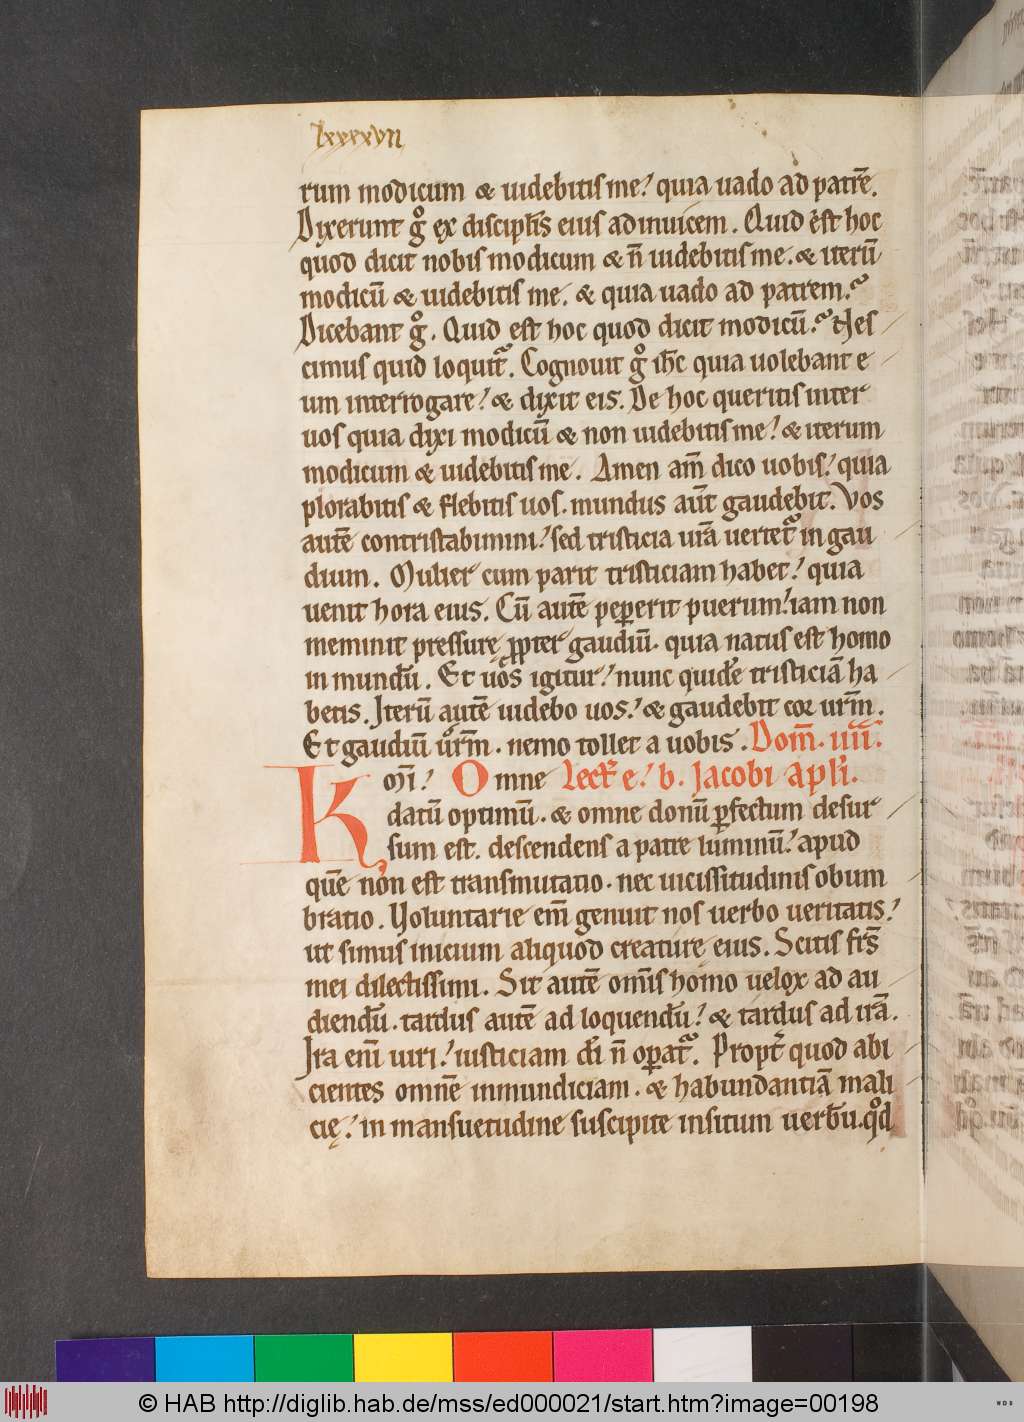 lxxxxvii
rum modicum & uidebitis me? quia uado ad patrē.
Dixerunt gͦ ex discipl̄is eius adinuicem. Quid est hoc
quod dicit nobis modicum & n̄ uidebitis me. & iterū
modicū & uidebitis me. & quia uado ad patrem?
Dicebant gͦ. Quid est hoc quod dicit modicū? Nes
cimus quid loquit᷑. Cognouit gͦ ih̄c quia uolebant e
um interrogare? & dixit eis. De hoc queritis inter
uos quia dixi modicū & non uidebitis me? & iterum
modicum & uidebitis me. Amen am̄ dico uobis? quia
plorabitis & flebitis uos. mundus aūt gaudebit. Vos
autē contristabimini? sed tristicia ur̄a uertet᷑ in gau
dium. Mulier cum parit tristiciam habet? quia
uenit hora eius. Cū autē peꝑerit puerum? iam non
meminit pressurę ꝓpter gaudiū. quia natus est homo
in mundū. Et uos igitur? nunc quidē tristiciā ha
betis. Iterū autē uidebo uos? & gaudebit cor ur̄m.
Et gaudiū ur̄m. nemo tollet a uobis. Dom̄. iiii.
K
om̄i? Omne Lect̄ e? b. Jacobi apl̄i.
datū optimū. & omne donū ꝑfectum desur
sum est. descendens a patre luminū? apud
quē non est transmutatio. nec uicissitudinis obum
bratio. Voluntarie em̄ genuit nos uerbo ueritatis?
ut simus inicium aliquod creature eius. Scitis frs̄
mei dilectissimi. Sit autē om̄is homo uelox ad au
diendū. tardus autē ad loquendū? & tardus ad irā.
Ira em̄ uiri? iusticiam dī n̄ oꝑat᷑. Propt̄ quod abi
cientes omnē inmundiciam. & habundantiā mali
cię? in mansuetudine suscipite insitum uerbū. qͦd
© HAB http://diglib.hab.de/mss/ed000021/start.htm?image=00198